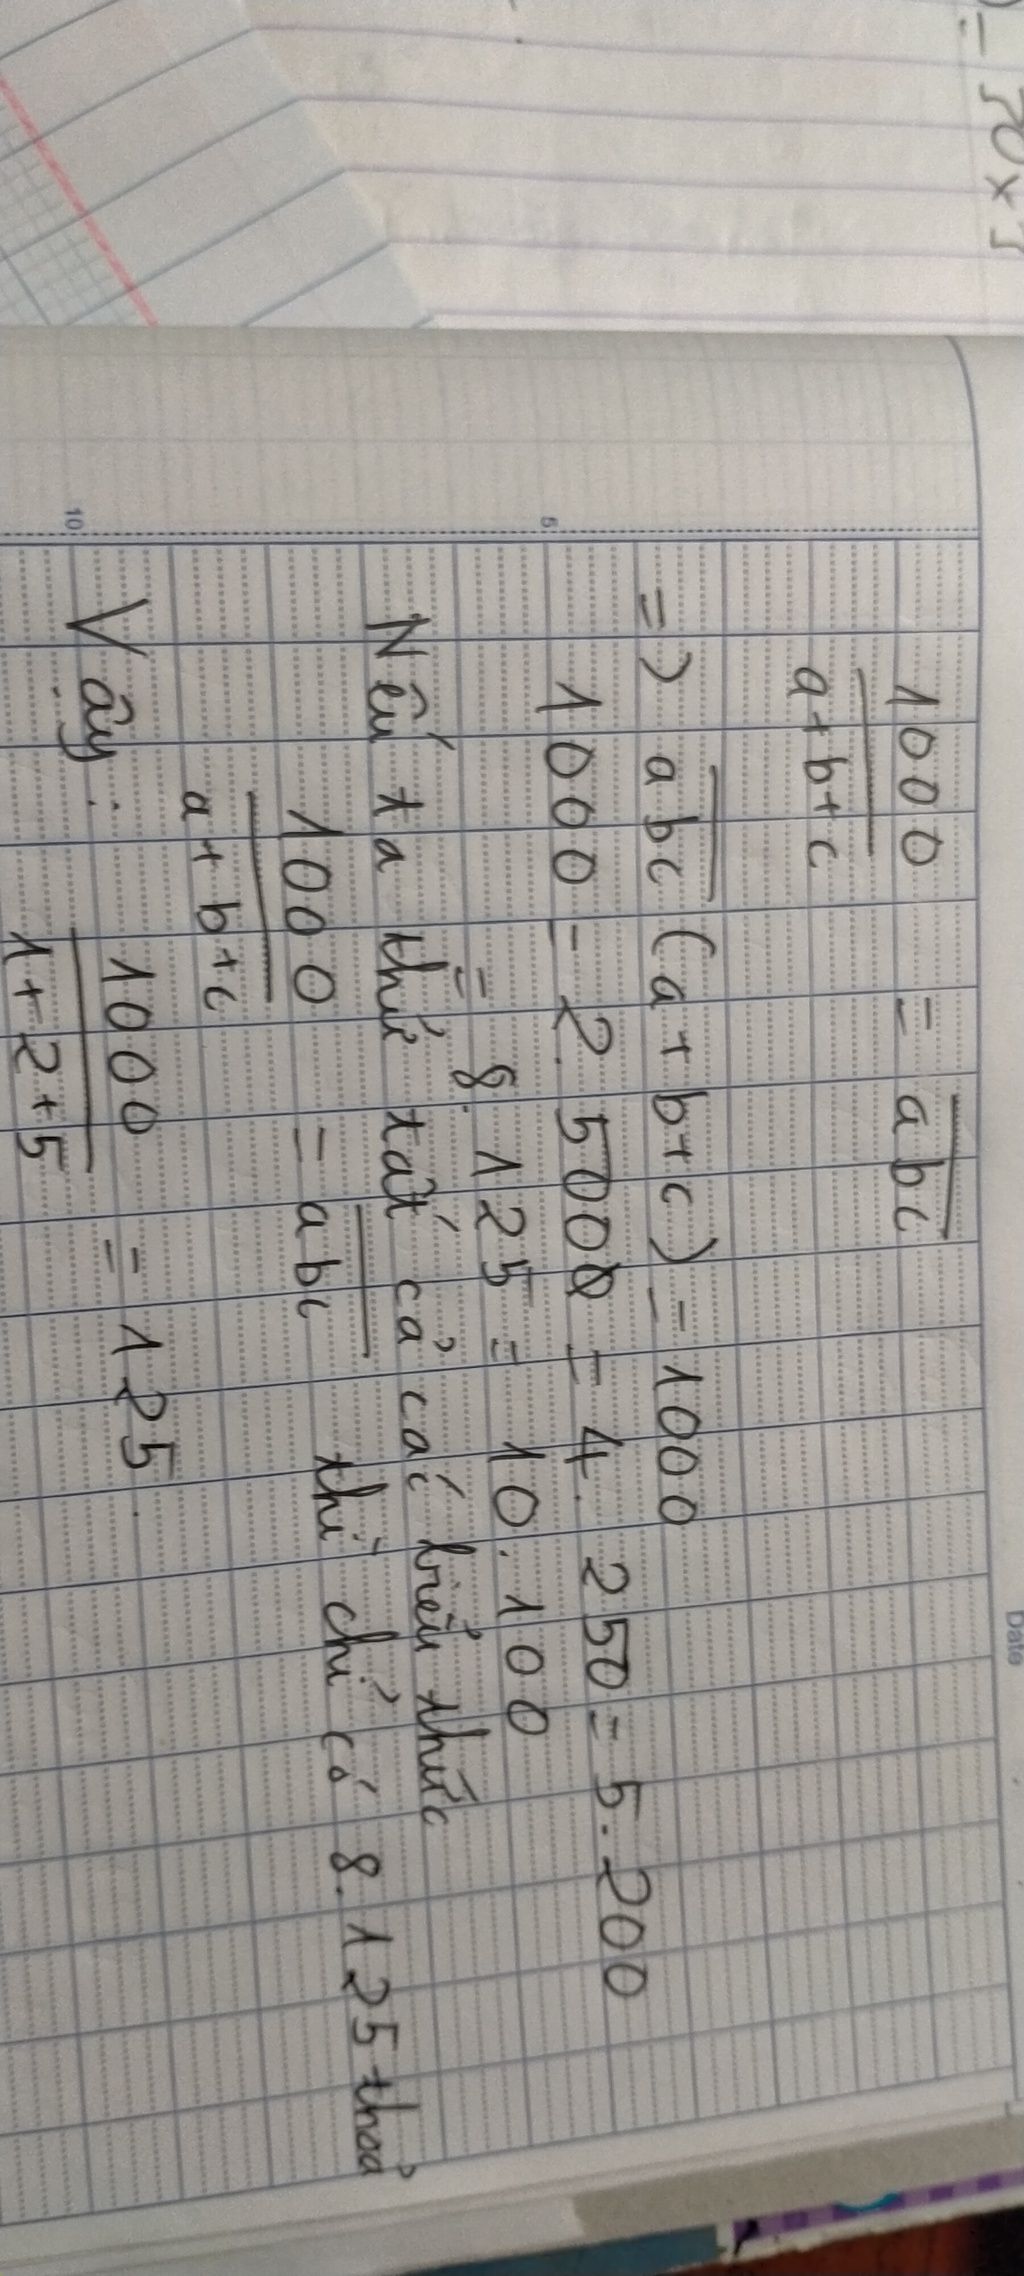 ) = 70 x 7
Date
1000 = abc
a+b+c
=) abc (a+b+c) = 1000
5
1000 = 2. 500 = 4. 250 = 5.200
= 8. 125 = 10.100
Nếu ta thử tất cả các biểu thức
1000 = abc thì chỉ có 8.125 thoả
a+b+c
10
Vậy: 1000 = 125
1+2+5